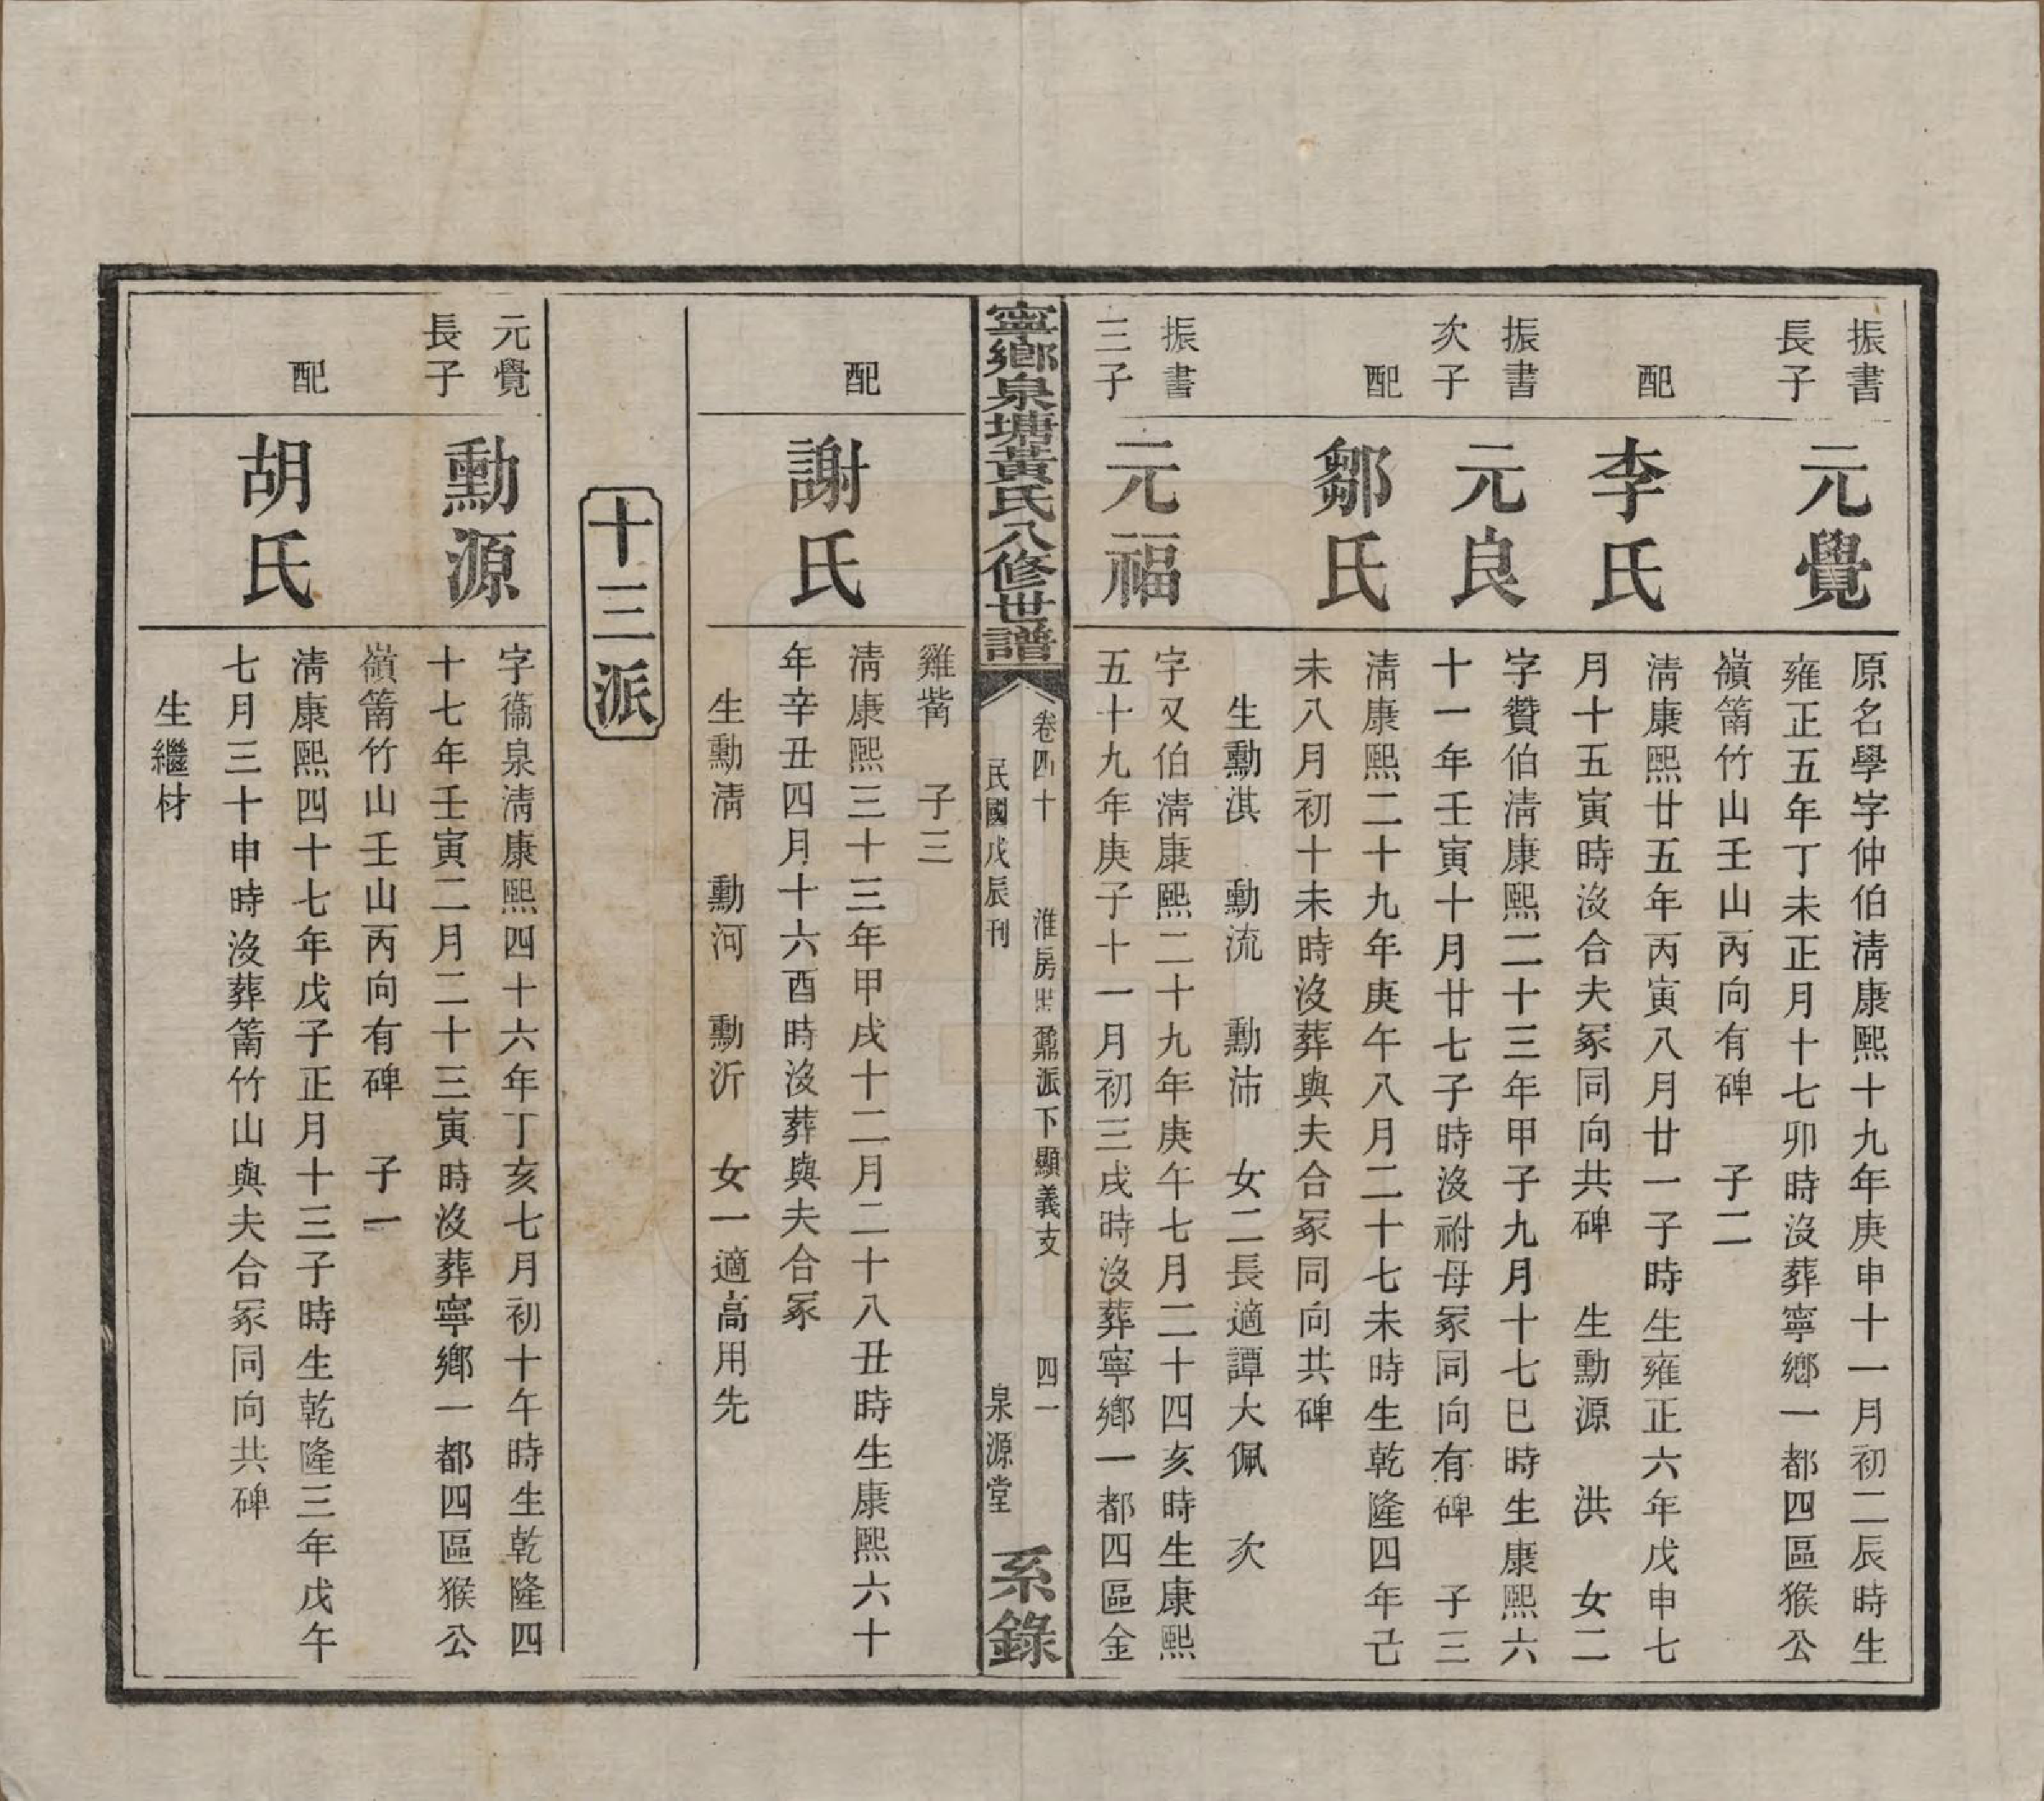 振書
長子
元覺
原名學字仲伯淸康熙十九年庚申十一月初二辰時生
雍正五年丁未正月十七卯時沒葬寧鄉一都四區猴公
嶺箾竹山壬山丙向有碑　子二
配
李氏
淸康熙廿五年丙寅八月廿一子時生雍正六年戊申七
月十五寅時沒合夫冢同向共碑　生勳源　洪　女二
振書
次子
元良
字贊伯淸康熙二十三年甲子九月十七巳時生康熙六
十一年壬寅十月廿七子時沒祔母冢同向有碑　子三
配
鄒氏
淸康熙二十九年庚午八月二十七未時生乾隆四年己
未八月初十未時沒葬與夫合冢同向共碑
生勳淇　勳流　勳沛　女二長適譚大佩　次
振書
三子
元福
字又伯淸康熙二十九年庚午七月二十四亥時生康熙
五十九年庚子十一月初三戌時沒葬寧鄉一都四區金
寧鄉泉塘黃氏八修世譜
卷四十　淮房鼐派下顯義支　四一
民國戊辰刊　泉源堂
系錄
雞嘴　子三
配
謝氏
淸康熙三十三年甲戌十二月二十八丑時生康熙六十
年辛丑四月十六酉時沒葬與夫合冢
生勳淸　勳河　勳沂　女一適高用先
十三派
元覺
長子
勳源
字衞泉淸康熙四十六年丁亥七月初十午時生乾隆四
十七年壬寅二月二十三寅時沒葬寧鄉一都四區猴公
嶺箾竹山壬山丙向有碑　子一
配
胡氏
淸康熙四十七年戊子正月十三子時生乾隆三年戊午
七月三十申時沒葬箾竹山與夫合冢同向共碑
生繼材